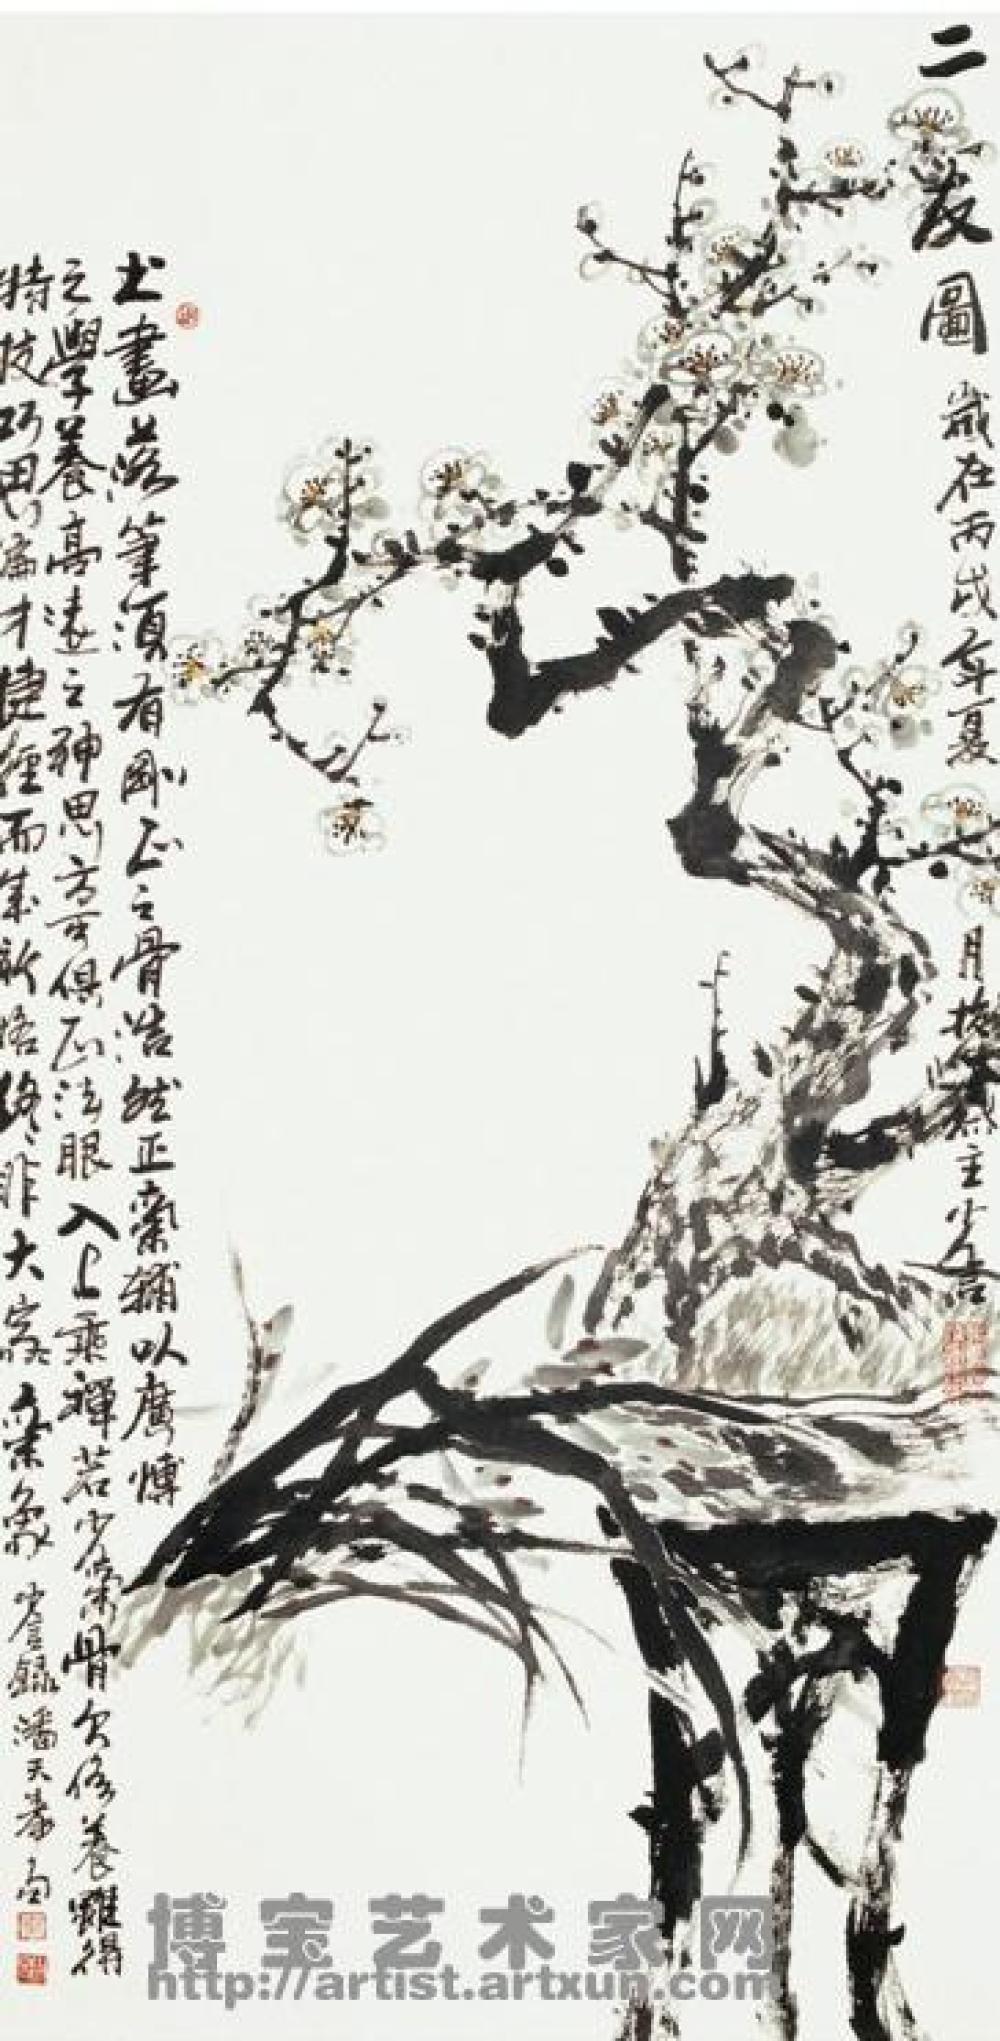 二友圖
歲在丙戌年夏月於主少
書畫落筆須有剛正之骨浩然正氣輔以廣博
之學養高遠之神思方可俱正法眼入上乘禪若少氣骨欠修養雖得
特技巧思偏才捷徑而成新格終非大家氣象
錄潘天壽句
博宝艺术家网
http://artist.artxun.com